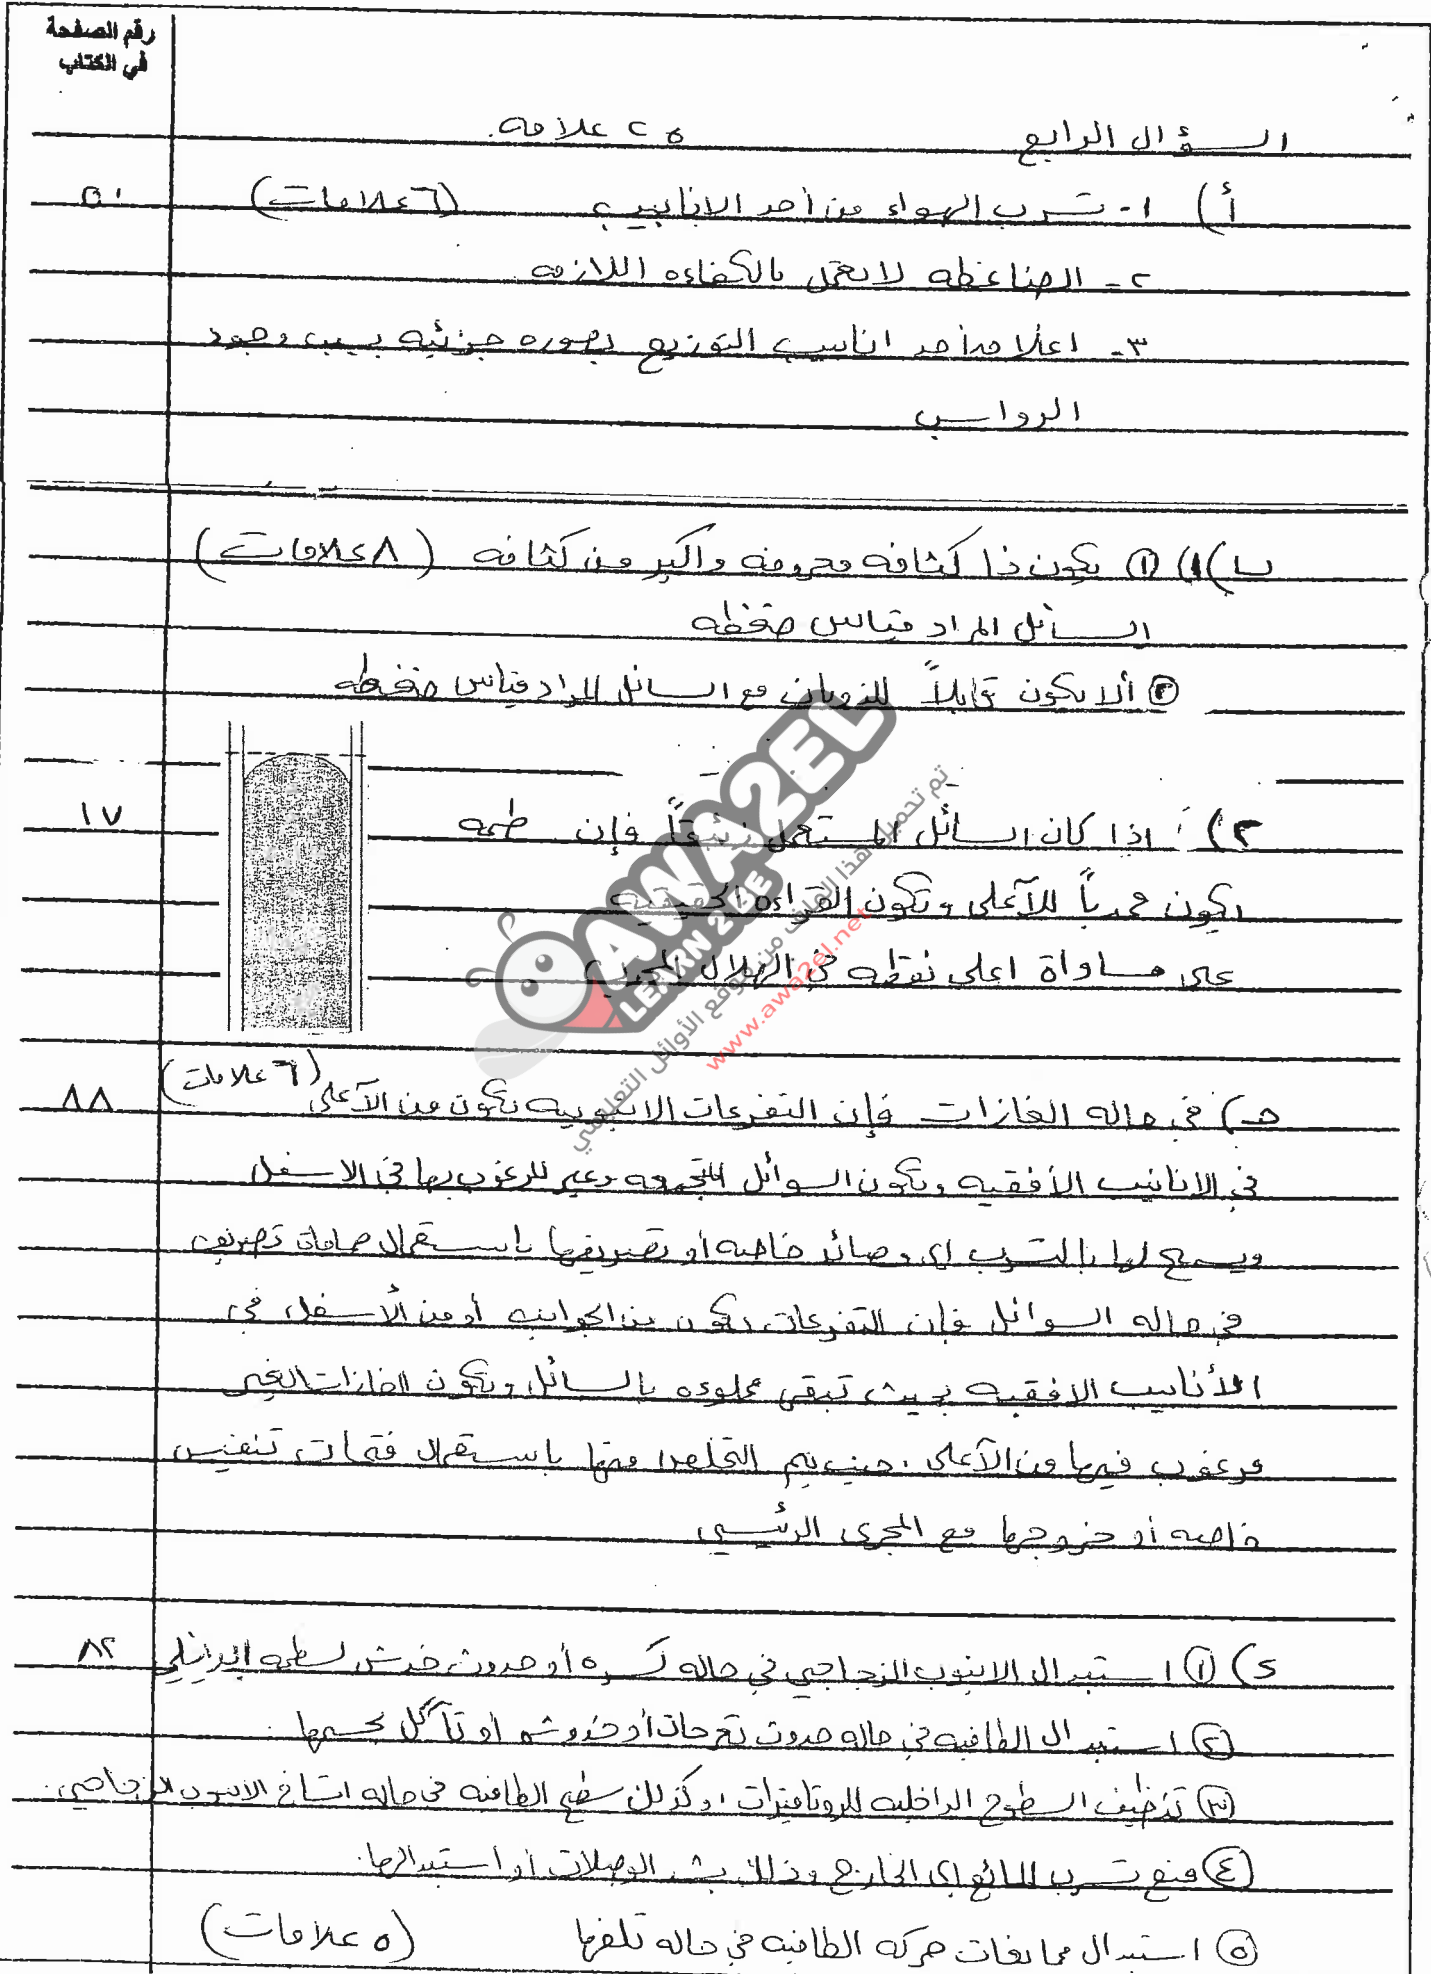 رقم الصفحة
في الكتاب
السؤال الرابع ٢٥ علامه
أ) ١- تسرب الهواء من أحد الانابيب (٦ علامات) ٥١
٢- الضاغطه لا تعمل بالكفاءه اللازمه
٣- اغلاق أحد انابيب التوزيع بصوره جزئيه بسبب وجود
الرواسب
ب) ١) ① يكون ذا كثافه معروفه واكبر من كثافه (٨ علامات)
السائل المراد قياس ضغطه
② ألا يكون قابلاً للذوبان مع السائل المراد قياس ضغطه
٢) اذا كان السائل المستعمل زئبقاً فإن سطحه ١٧
يكون محدباً للأعلى وتكون القراءه الحقيقيه
على مساواة اعلى نقطه في الهلال المحدب
AWA2EL
LEARN 2 BE
تم تحميل هذا الملف من موقع الأوائل التعليمي
www.awa2el.net
جـ) في حاله الغازات فإن التفرعات الانبوبيه تكون من الأعلى (٦ علامات) ٨٨
في الانابيب الأفقيه وتكون السوائل المتجمعه وغير المرغوب بها في الاسفل
ويسمح لها بالتسرب الى مصائد خاصه أو تصريفها باستعمال صمامات تصريف
في حاله السوائل فإن التفرعات تكون من الجوانب أو من الأسفل في
الأنابيب الافقيه بحيث تبقى مملوءه بالسائل وتكون الغازات الغير
مرغوب فيها من الأعلى ، حيث يتم التخلص منها باستعمال فتحات تنفيس
خاصه أو خروجها مع المجرى الرئيسي
د) ① استبدال الانبوب الزجاجي في حاله كسره أو حدوث خدش لسطحه الداخلي ٨٢
② استبدال الطافيه في حاله حدوث تعرجات أو خدوش أو تآكل بجسمها .
③ تنظيف السطوح الداخليه للروتاميترات ، وكذلك سطح الطافيه في حاله اتساخ الانبوب الزجاجي .
④ منع تسرب المائع الى الخارج وذلك بشد الوصلات أو استبدالها .
⑤ استبدال ممانعات حركه الطافيه في حاله تلفها (٥ علامات)